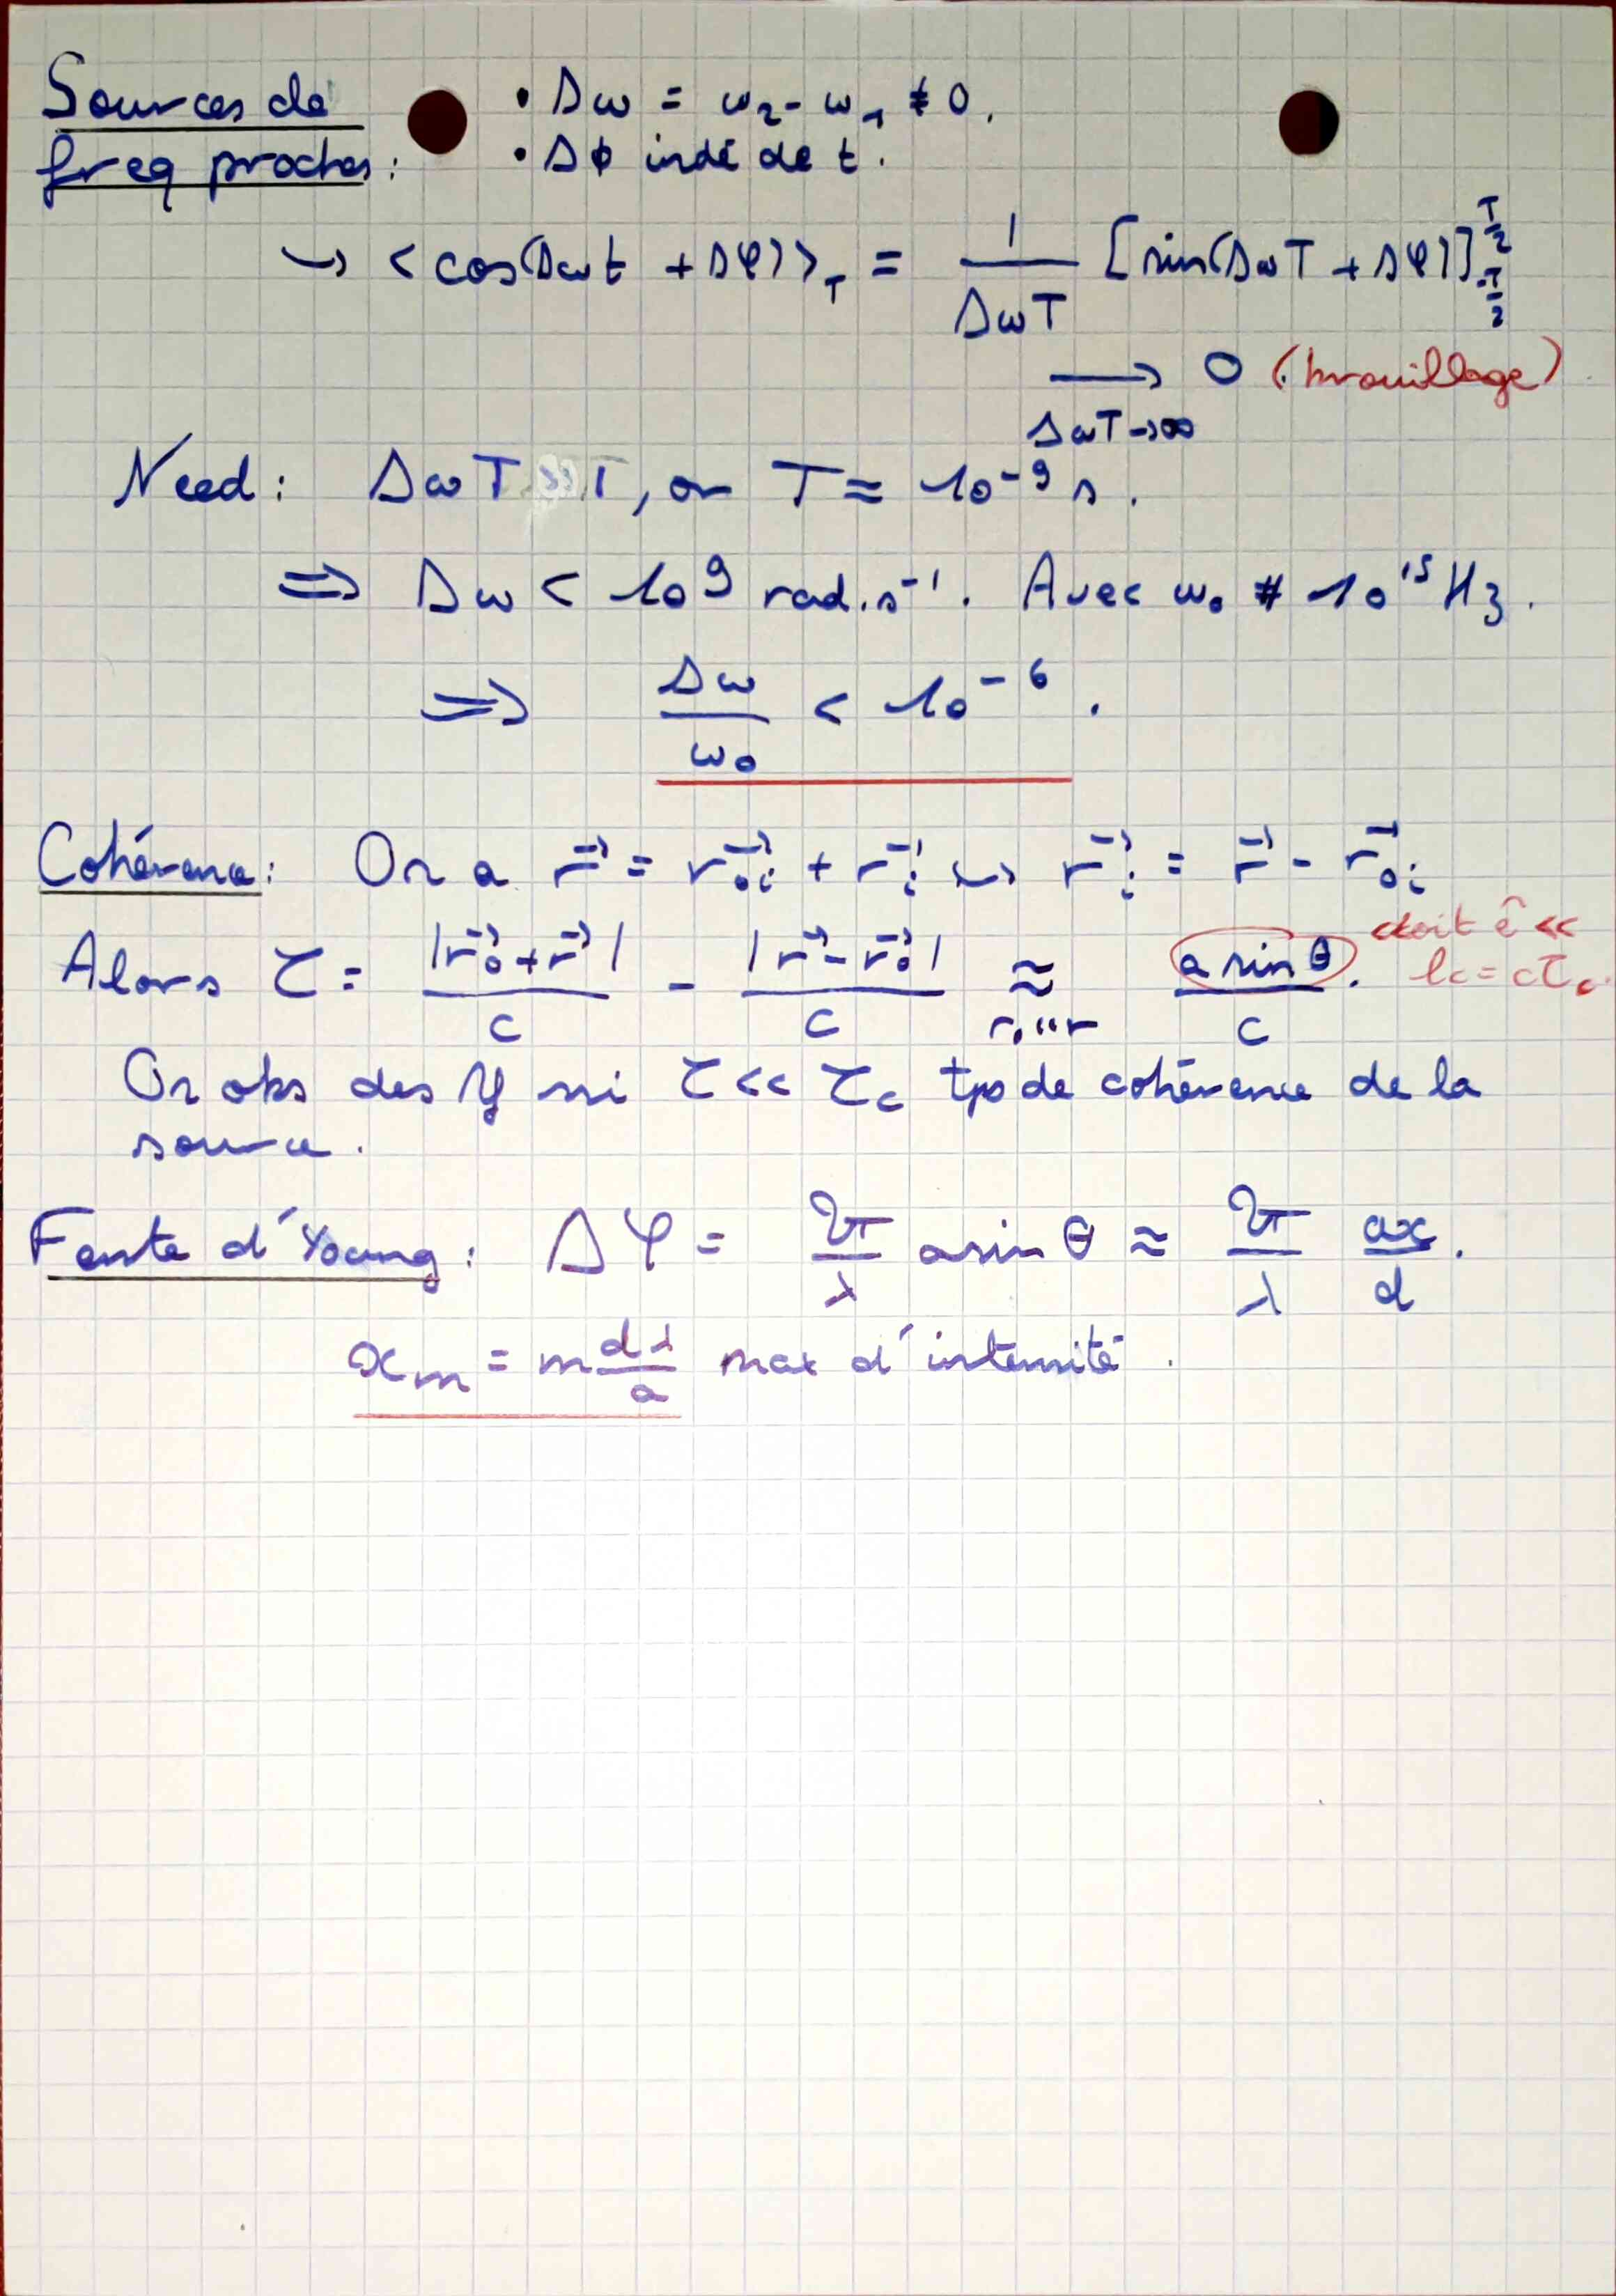 Sources de
freq proches :
• Δω = ω₂ - ω₁ ≠ 0.
• Δϕ indé de t.
↪ <cos(Δωt + Δφ)>_T = 1/(ΔωT) [sin(ΔωT + Δφ)]_{-T/2}^{T/2}
⟶_{ΔωT→∞} 0 (brouillage)
Need : ΔωT, or T ≈ 10⁻⁹ s.
⇒ Δω < 10⁹ rad.s⁻¹. Avec ω₀ # 10¹⁵ Hz.
⇒ Δω/ω₀ < 10⁻⁶.
Cohérence : On a r⃗ = r⃗₀ᵢ + r⃗ᵢ ↪ r⃗ᵢ = r⃗ - r⃗₀ᵢ
Alors τ = |r⃗₀ + r⃗|/c - |r⃗ - r⃗₀|/c ≈_{r₀<<r} a sin θ/c. doit ê << lc = cτc.
On obs des si τ << τc tps de cohérence de la
source.
Fente d'Young : Δφ = 2π/λ a sin θ ≈ 2π/λ ax/d.
xₘ = m dλ/a max d'intensité.